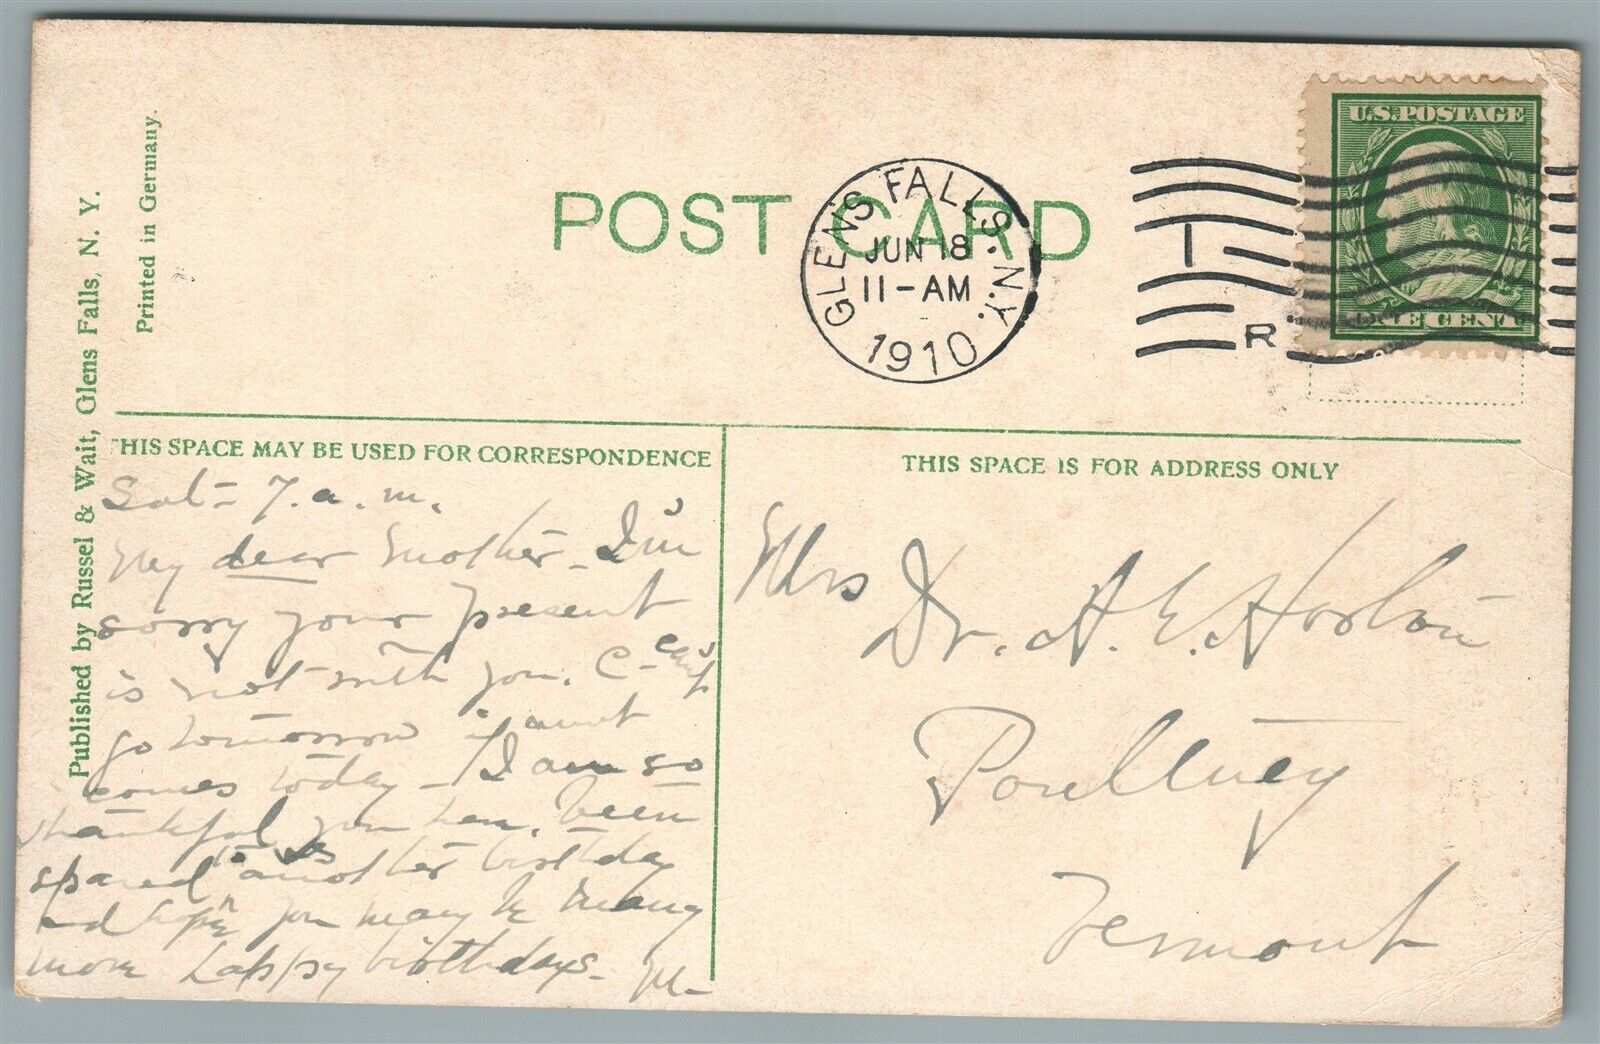 Published by Russel & Wait, Glens Falls, N. Y.
Printed in Germany.
POST CARD
GLENS FALLS. N.Y.
JUN 18
11-AM
1910
1
R
U.S. POSTAGE
ONE CENT
THIS SPACE MAY BE USED FOR CORRESPONDENCE
THIS SPACE IS FOR ADDRESS ONLY
Sat - 7. a. m.
My dear Mother - I'm
sorry your present
is not with you. C - can't
go tomorrow if aunt
comes today - I am so
thankful you have been
spared to us another birthday
and hope you may have many
more happy birthdays - M -
Mrs Dr. A. E. Horton
Poultney
Vermont